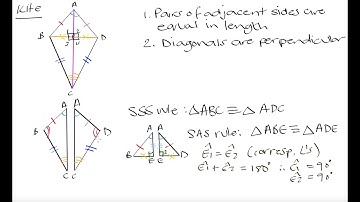 Kite
1. Pairs of adjacent sides are
equal in length
2. Diagonals are perpendicular
A
B
D
C
SSS rule : △ABC ≡ △ADC
A A
B
D
C C
SAS rule: △ABE ≡ △ADE
Ê₁ = Ê₂ (corresp. L's)
Ê₁ + Ê₂ = 180° ∴ Ê₁ = 90°
Ê₂ = 90°
A A
B
E E
D